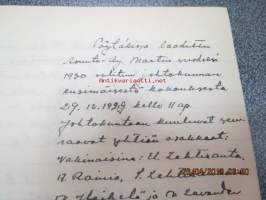 Pöytäkirja laadittu
Asunto-Oy. Martin vuodeksi
1930 valitun johtokunnan
ensimäisestä kokouksesta
29.12.1929 kello 11 ap.
Johtokuntaan kuuluvat seu-
raavat yhtiön osakkaat:
Vakinaisina: U. Lehtisanta,
A. Rainio, S. Leht
Heikelä ja Lavander
Antikvariaatti.net